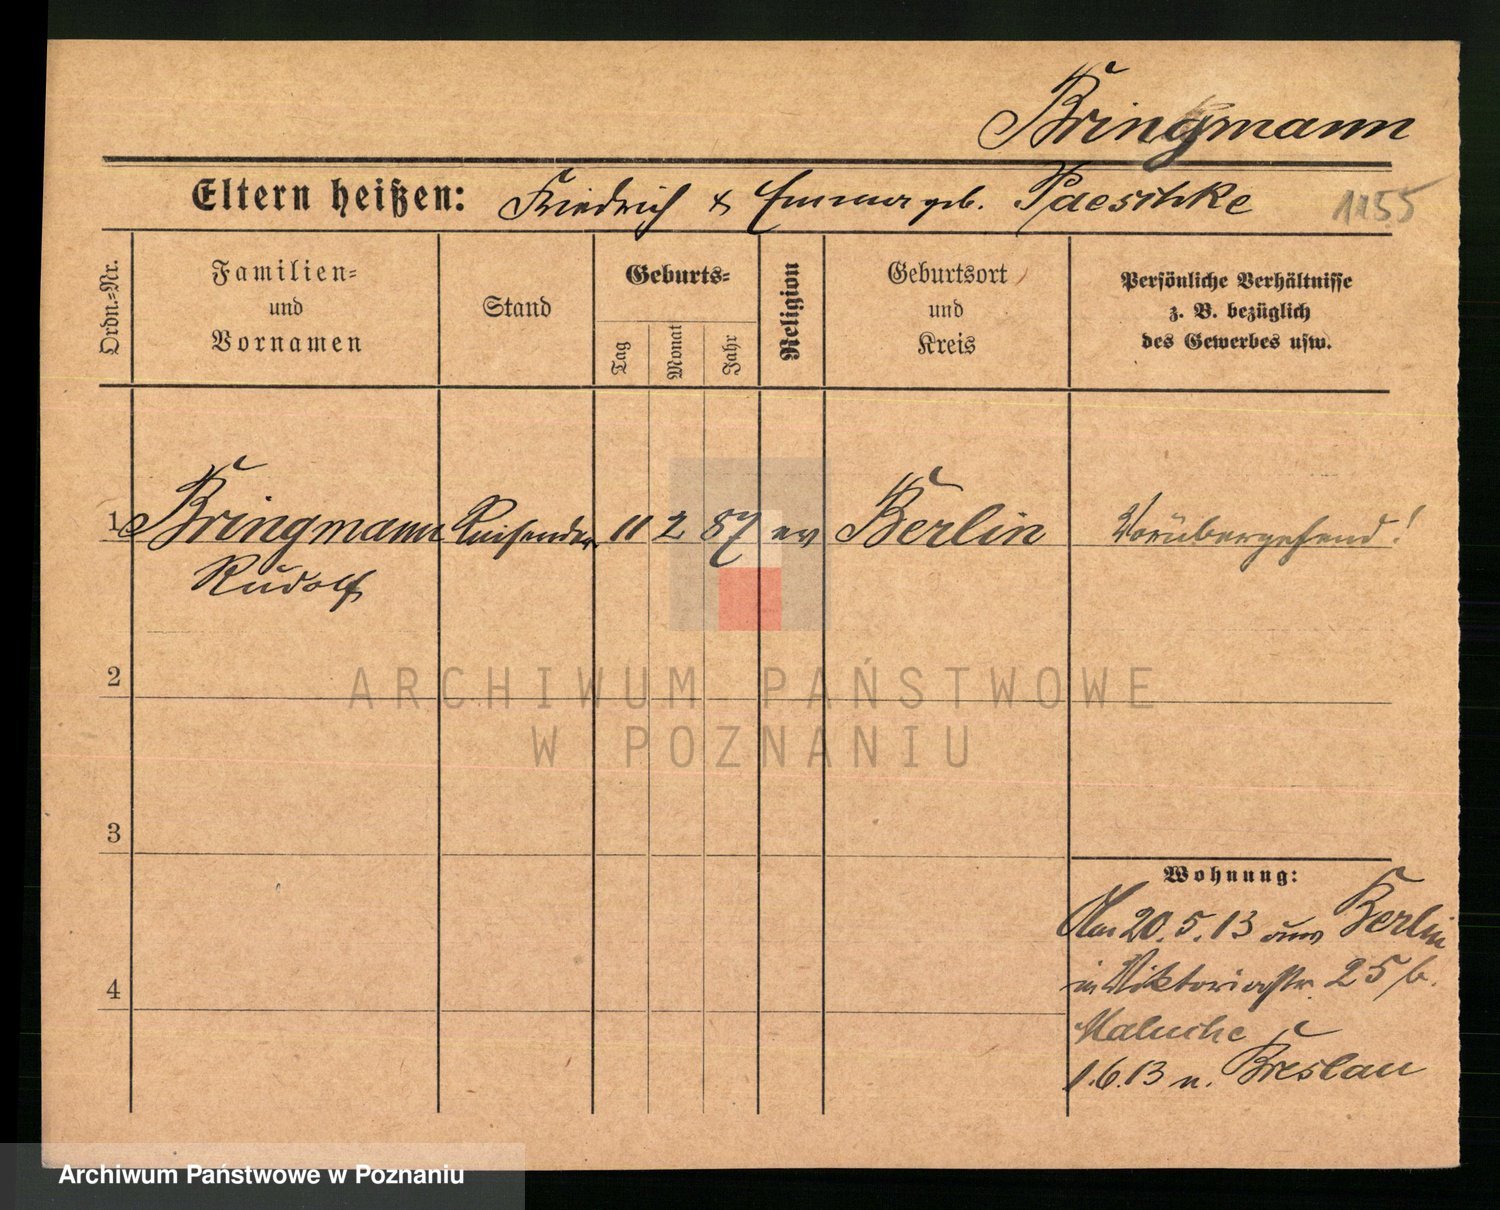 Bringmann
Eltern heißen: Friedrich & Emma geb. Paeschke 1155
Ordn.-Nr.
Familien-
und
Vornamen
Stand
Geburts-
Tag
Monat
Jahr
Religion
Geburtsort
und
Kreis
Persönliche Verhältnisse
z. B. bezüglich
des Gewerbes usw.
1 Bringmann Reisender 11 2 87 ev Berlin Vorübergehend!
Rudolf
2
ARCHIWUM PAŃSTWOWE
W POZNANIU
3
Wohnung:
Am 20.5.13 aus Berlin
in Viktoriastr. 25 b.
4
1.6.13 n. Breslau
Archiwum Państwowe w Poznaniu